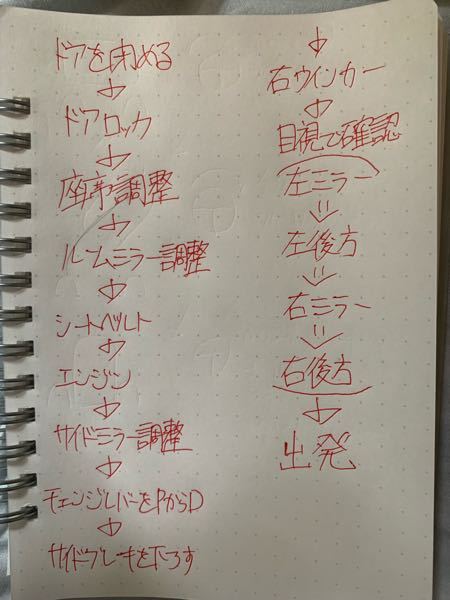 ドアを閉める
↓
ドアロック
↓
座席調整
↓
ルームミラー調整
↓
シートベルト
↓
エンジン
↓
サイドミラー調整
↓
チェンジレバーをPからD
↓
サイドブレーキを下ろす
↓
右ウインカー
↓
目視で確認
左ミラー
↓
左後方
↓
右ミラー
↓
右後方
↓
出発